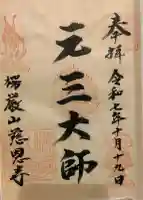 奉拝 令和七年十月十九日
元三大師
瑞巌山慈恩寺